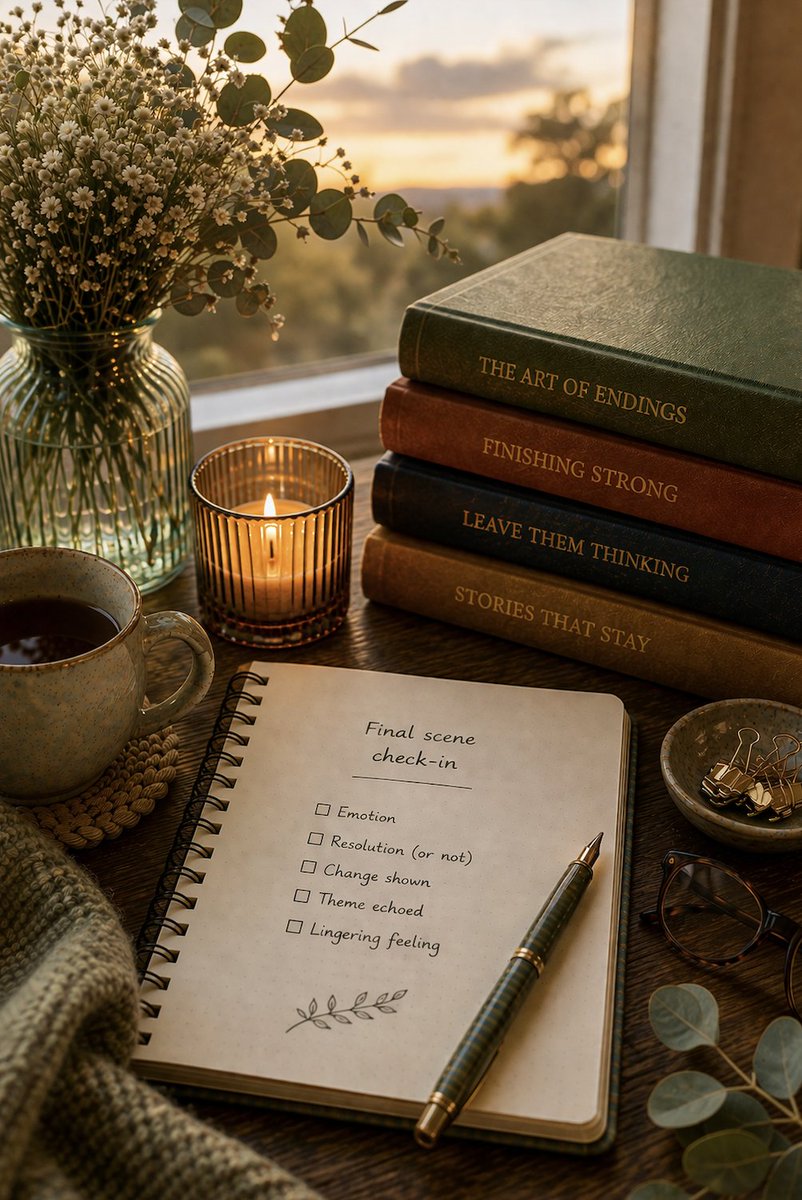 THE ART OF ENDINGS
FINISHING STRONG
LEAVE THEM THINKING
STORIES THAT STAY
Final scene
check-in
Emotion
Resolution (or not)
Change shown
Theme echoed
Lingering feeling